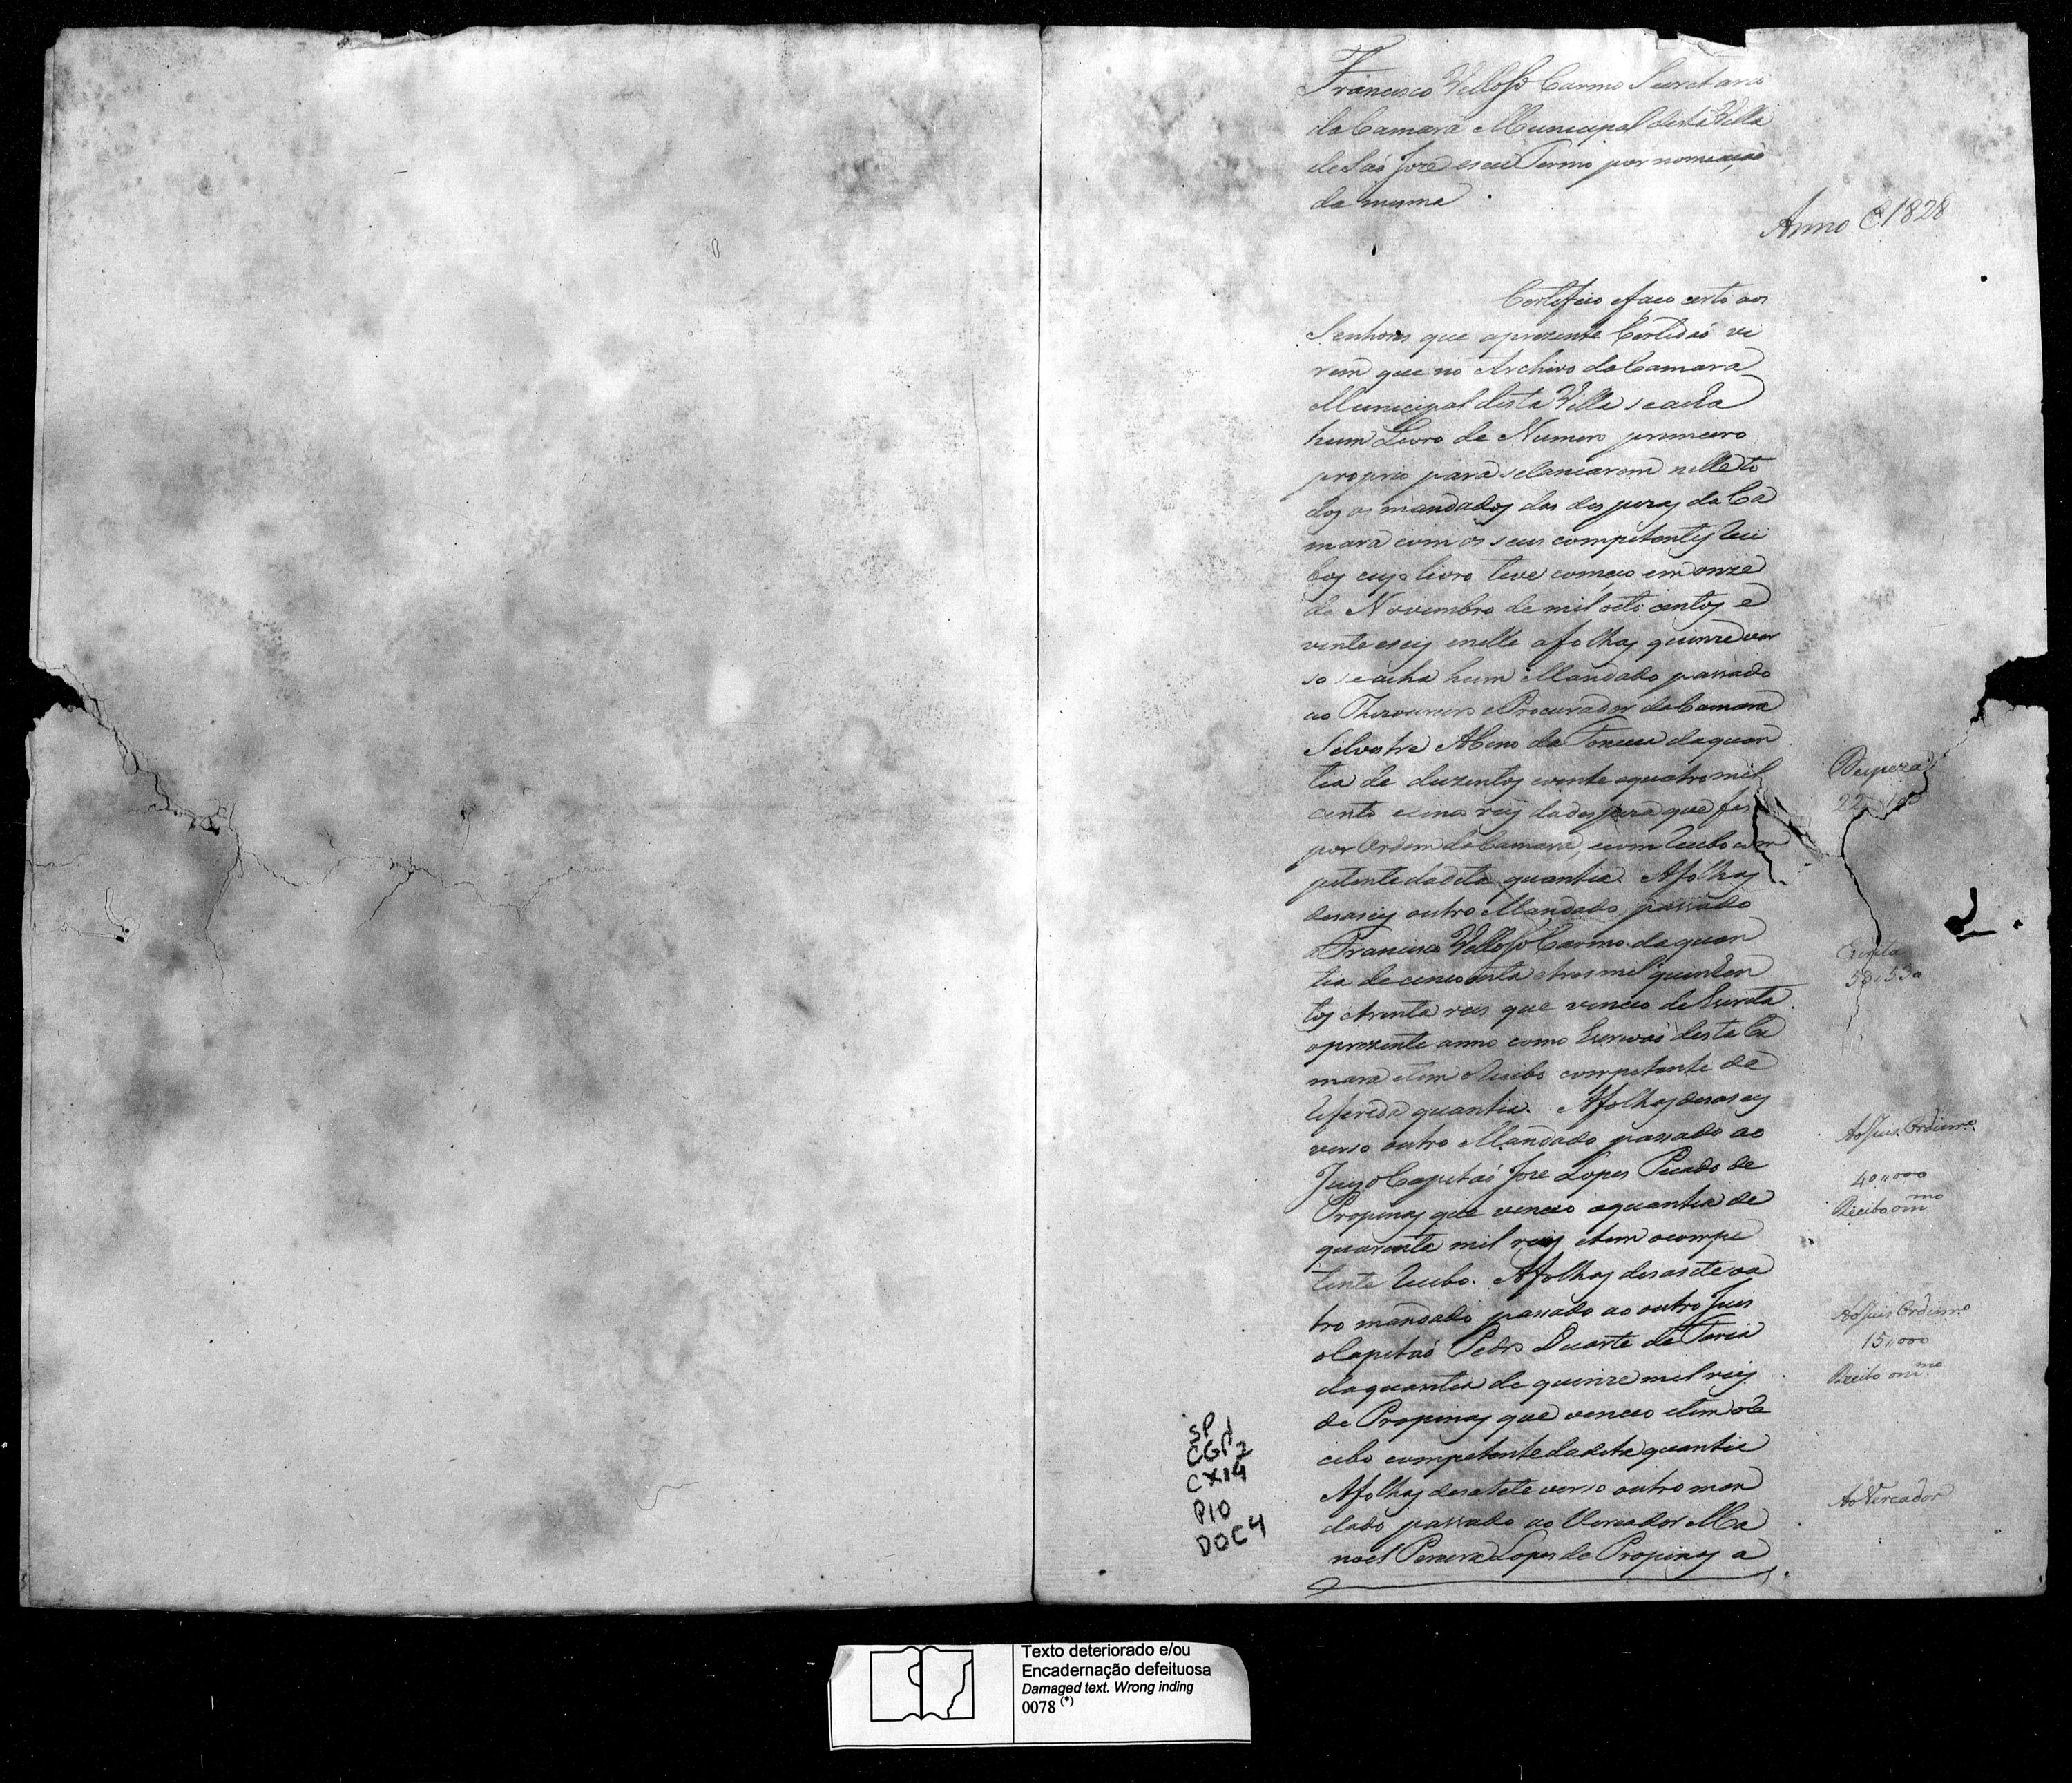 Francisco Velloso Carmo Secretario
da Camara Municipal desta Villa
de Saõ Joze e seu Termo por nomeaçaõ
da mesma
Anno D 1828
Certefico e faço certo aos
Senhores que a prezente Certidaõ vi
rem que no Archivo da Camara
Municipal desta Villa se acha
hum Livro de Numero primeiro
proprio para se lançarem nelle to
dos os mandados das despezas da Ca
mara com os seus competentes Reci
bos cujo livro teve comeco em onze
de Novembro de mil oito centos e
vinte e seis e nelle a folhas quinze ver
so se acha hum Mandado passado
ao Thezoureiro e Procurador da Camara
Silvestre da Fonseca da quan
tia de duzentos e vinte e quatro mil
cento e cinco reis da despeza que fes
por Ordem da Camara, e com Recibo com
petente da dita quantia. A folhas
desaseis outro Mandado passado
a Francisco Vellozo Carmo da quan
tia de cincoenta e tres mil quinhen
tos e trinta reis que venceo de Escrita
o prezente anno como Escrivaõ desta Ca
mara e tem o Recibo competente da
Referida quantia. A folhas desaseis
verso outro Mandado passado ao
Juis o Capitaõ Joze Lopes Picado de
Propinas que venceo a quantia de
quarenta mil reis e tem o compe
tente Recibo. A folhas desasete ou
tro mandado passado ao outro Juis
o Capitaõ Pedro Duarte de Faria
da quantia de quinze mil reis
de Propinas que venceo e tem o Re
cibo competente da dita quantia
A folhas desasete verso outro man
dado passado ao Vereador Ma
noel Pereira Lopes de Propinas a
Despeza
Escrita
53,530
Ao Juis Ordinro.
40,,000
Recibo o mmo
Ao Juis Ordinro.
15,,000
Recibo o mmo
Ao Vereador
SP
CGPI
CX14
P10
DOC4
Texto deteriorado e/ou
Encadernação defeituosa
Damaged text. Wrong inding
0078 (*)